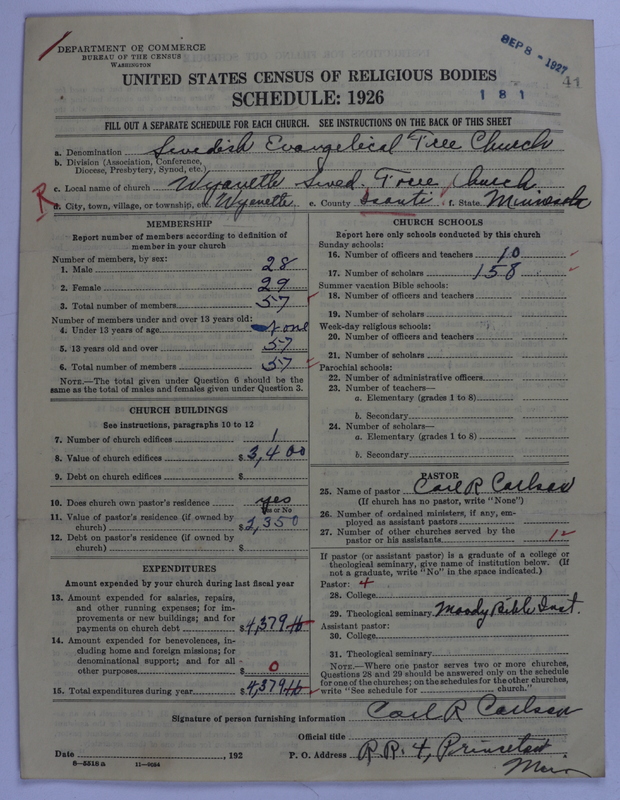 DEPARTMENT OF COMMERCE
BUREAU OF THE CENSUS
WASHINGTON
SEP 8 - 1927
41
UNITED STATES CENSUS OF RELIGIOUS BODIES
SCHEDULE: 1926
1 8 1
FILL OUT A SEPARATE SCHEDULE FOR EACH CHURCH. SEE INSTRUCTIONS ON THE BACK OF THIS SHEET
a. Denomination Swedish Evangelical Free Church
b. Division (Association, Conference, Diocese, Presbytery, Synod, etc.)
c. Local name of church Wyaneth Swed. Free Church
R
d. City, town, village, or township, etc. Wyanette e. County Isanti f. State Minnesota
MEMBERSHIP
Report number of members according to definition of
member in your church
Number of members, by sex:
1. Male 28
2. Female 29
3. Total number of members 57
Number of members under and over 13 years old:
4. Under 13 years of age none
5. 13 years old and over 57
6. Total number of members 57
NOTE.—The total given under Question 6 should be the
same as the total of males and females given under Question 3.
CHURCH BUILDINGS
See instructions, paragraphs 10 to 12
7. Number of church edifices 1
8. Value of church edifices $ 3,400
9. Debt on church edifices $
10. Does church own pastor's residence yes
Yes or No
11. Value of pastor's residence (if owned by
church) $ 2,350
12. Debt on pastor's residence (if owned by
church) $
EXPENDITURES
Amount expended by your church during last fiscal year
13. Amount expended for salaries, repairs,
and other running expenses; for im-
provements or new buildings; and for
payments on church debt $ 4,379 16
14. Amount expended for benevolences, in-
cluding home and foreign missions; for
denominational support; and for all
other purposes $ 0
15. Total expenditures during year $ 4,379 16
CHURCH SCHOOLS
Report here only schools conducted by this church
Sunday schools:
16. Number of officers and teachers 10
17. Number of scholars 158
Summer vacation Bible schools:
18. Number of officers and teachers
19. Number of scholars
Week-day religious schools:
20. Number of officers and teachers
21. Number of scholars
Parochial schools:
22. Number of administrative officers
23. Number of teachers—
a. Elementary (grades 1 to 8)
b. Secondary
24. Number of scholars—
a. Elementary (grades 1 to 8)
b. Secondary
PASTOR
25. Name of pastor Carl R Carlson
(If church has no pastor, write "None")
26. Number of ordained ministers, if any, em-
ployed as assistant pastors
27. Number of other churches served by the
pastor or his assistants
If pastor (or assistant pastor) is a graduate of a college or
theological seminary, give name of institution below. (If
not a graduate, write "No" in the space indicated.)
Pastor: 4
28. College
29. Theological seminary Moody Bible Inst.
Assistant pastor:
30. College
31. Theological seminary
NOTE.—Where one pastor serves two or more churches,
Questions 28 and 29 should be answered only on the schedule
for one of the churches; on the schedules for the other churches,
write "See schedule for church."
Signature of person furnishing information Carl R Carlson
Official title
Date , 192 P. O. Address R.R. 4, Princeton
Minn
8—5518a 11—9034